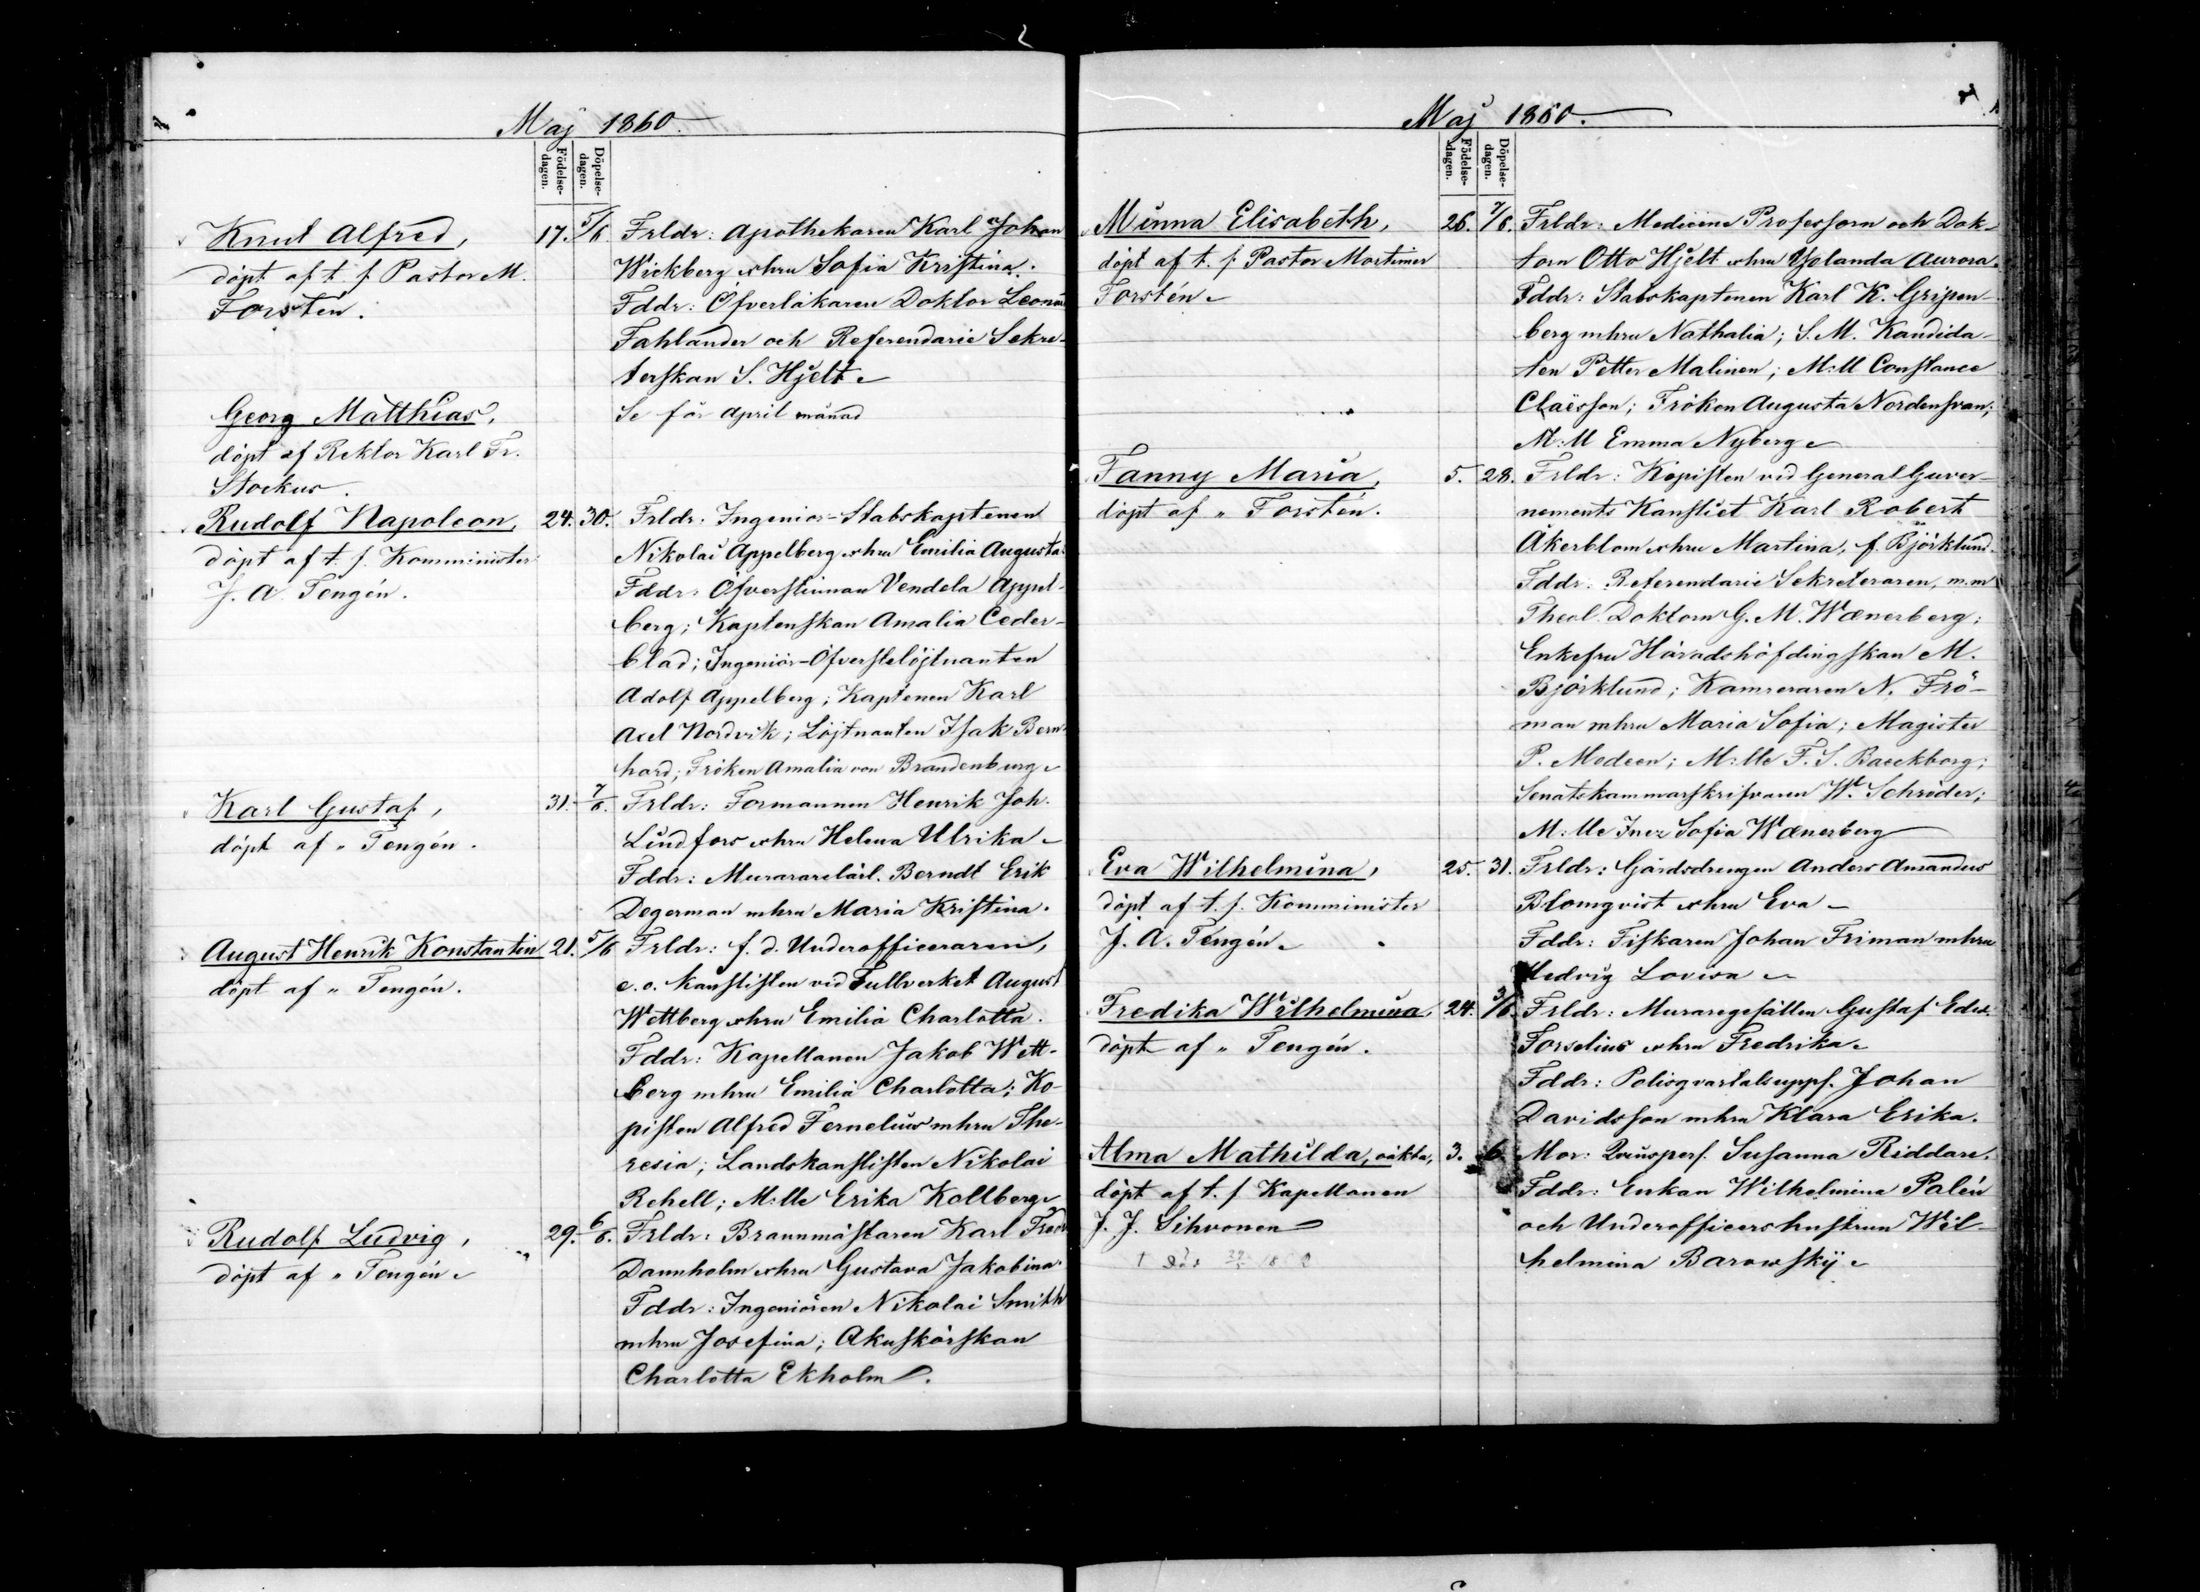 Maj 1860.
Födelse-
dagen.
Döpelse-
dagen.
Knut Alfred, 17. 5/6. Frldr: Apothekaren Karl Johan
döpt af t. f. Pastor M. Wickberg o hru Sofia Kristina.
Forstén. Fddr: Öfverläkaren Doktor Leonard
Fahlander och Referendarie Sekre-
terskan S. Hjelt
Georg Matthias, Se för April månad
döpt af Rektor Karl Fr.
Stockus.
Rudolf Napoleon, 24. 30. Frldr: Ingeniör-Stabskaptenen
döpt af t. f. Komminister Nikolai Appelberg o hru Emilia Augusta.
J. A. Tengén. Fddr: Öfverstinnan Vendela Appel-
berg; Kaptenskan Amalia Ceder-
blad; Ingeniör-Öfverstelöjtnanten
Adolf Appelberg; Kaptenen Karl
Axel Nordvik; Löjtnanten Isak Bern-
hard; Fröken Amalia von Brandenburg
Karl Gustaf, 31. 7/6. Frldr: Formannen Henrik Joh.
döpt af " Tengén. Lindfors o hru Helena Ulrika
Fddr: Murarelärl. Berndt Erik
Degerman m hru Maria Kristina.
August Henrik Konstantin 21. 5/6 Frldr: f. d. Underofficeraren,
döpt af " Tengén. e. o. Kanslisten vid Tullverket August
Wettberg o hru Emilia Charlotta.
Fddr: Kapellanen Jakob Wett-
berg m hru Emilia Charlotta; Ko-
pisten Alfred Fernelius m hru The-
resia; Landskanslisten Nikolai
Rehell; M:lle Erika Kollberg
Rudolf Ludvig, 29. 6/6. Frldr: Brannmästaren Karl Fredr
döpt af " Tengén Dannholm o hru Gustava Jakobina.
Fddr: Ingeniören Nikolai Smith
m hru Josefina; Akuskörskan
Charlotta Ekholm.
Maj 1860.
Födelse-
dagen.
Döpelse-
dagen.
Minna Elisabeth, 26. 7/6. Frldr: Medicine Professorn och Dok-
döpt af t. f. Pastor Mortimer torn Otto Hjelt o hru Yolanda Aurora.
Forstén Fddr: Stabskaptenen Karl K. Gripen-
berg m hru Nathalia; S. M. Kandida-
ten Petter Malinen; M:ll Constance
Claësson; Fröken Augusta Nordensvan;
M:ll Emma Nyberg
Fanny Maria, 5. 28. Frldr: Kopisten vid General Guver-
döpt af " Forstén. nements Kansliet Karl Robert
Åkerblom o hru Martina, f. Björklund.
Fddr: Referendarie Sekreteraren, m.m
Theol. Doktorn G. M. Wænerberg;
Enkefru Häradshöfdingskan M.
Björklund; Kamreraren N. Frö-
man m hru Maria Sofia; Magister
P. Modeen; M:lle F. S. Baeckborg;
Senatskammarskrifvaren W. Schröder;
M:lle Inez Sofia Wænerberg
Eva Wilhelmina, 25. 31. Frldr: Gårdsdrengen Anders Amandus
döpt af t. f. Komminister Blomqvist o hru Eva
J. A. Tengén Fddr: Fiskaren Johan Friman m hru
Hedvig Lovisa
Fredika Wilhelmina 24. 3/6. Frldr: Muraregesällen Gustaf Edv.
döpt af " Tengén. Forselius o hru Fredrika
Fddr: Polisqvartalsuppf. Johan
Davidsson m hru Klara Erika.
Alma Mathilda, oäkta, 3. 6. Mor: Qvinspers. Susanna Riddare.
döpt af t. f. Kapellanen Fddr: Enkan Wilhelmina Palén
J. J. Sihvonen och Underofficershustrun Wil-
helmina Barowskij